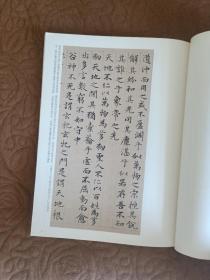 道沖而用之或不盈淵乎似萬物之宗挫其銳
解其紛和其光同其塵湛乎似或存吾不知
其誰之子象帝之先
天地不仁以萬物為芻狗聖人不仁以百姓為芻
狗天地之間其猶橐籥乎虛而不屈動而愈
出多言數窮不如守中
谷神不死是謂玄牝玄牝之門是謂天地根